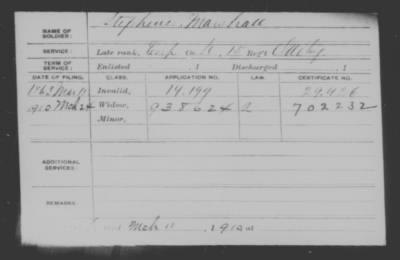 NAME OF SOLDIER: Stephen Marshall
SERVICE: Late rank, Corp Regt
TERM OF SERVICE: Enlisted , 1 Discharged , 1
DATE OF FILING. CLASS. APPLICATION NO. LAW. CERTIFICATE NO.
Invalid, 14.199 29.426
1910 Mch 24 Widow, 938624 a 702232
Minor,
ADDITIONAL SERVICES:
REMARKS:
Mch 11 , 1910